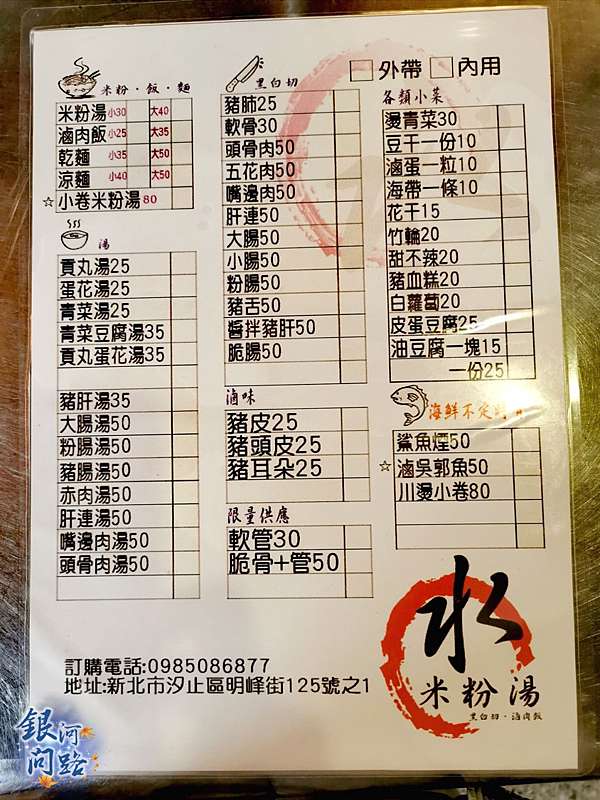 米粉·飯·麵
米粉湯 小30 大40
滷肉飯 小25 大35
乾麵 小35 大50
涼麵 小40 大50
☆小卷米粉湯 80
湯
貢丸湯25
蛋花湯25
青菜湯25
青菜豆腐湯35
貢丸蛋花湯35
豬肝湯35
大腸湯50
粉腸湯50
豬腸湯50
赤肉湯50
肝連湯50
嘴邊肉湯50
頭骨肉湯50
黑白切
豬肺25
軟骨30
頭骨肉50
五花肉50
嘴邊肉50
肝連50
大腸50
小腸50
粉腸50
豬舌50
醬拌豬肝50
脆腸50
滷味
豬皮25
豬頭皮25
豬耳朵25
限量供應
軟管30
脆骨+管50
□外帶 □內用
各類小菜
燙青菜30
豆干一份10
滷蛋一粒10
海帶一條10
花干15
竹輪20
甜不辣20
豬血糕20
白蘿蔔20
皮蛋豆腐25
油豆腐一塊15
一份25
海鮮不定
鯊魚煙50
☆滷吳郭魚50
川燙小卷80
水
米粉湯
黑白切·滷肉飯
訂購電話:0985086877
地址:新北市汐止區明峰街125號之1
銀河
問路